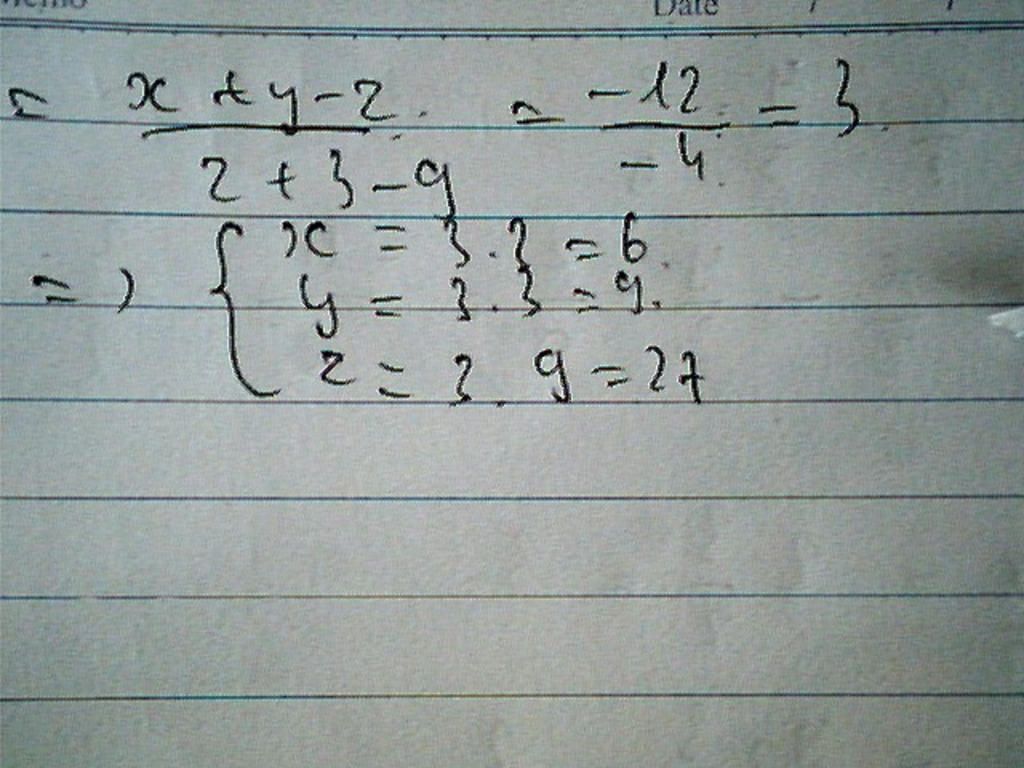 Memo Date / /
= x + y - z / 2 + 3 - 9 = -12 / -4 = 3
=> { x = 3 . 2 = 6
y = 3 . 3 = 9.
z = 3 . 9 = 27